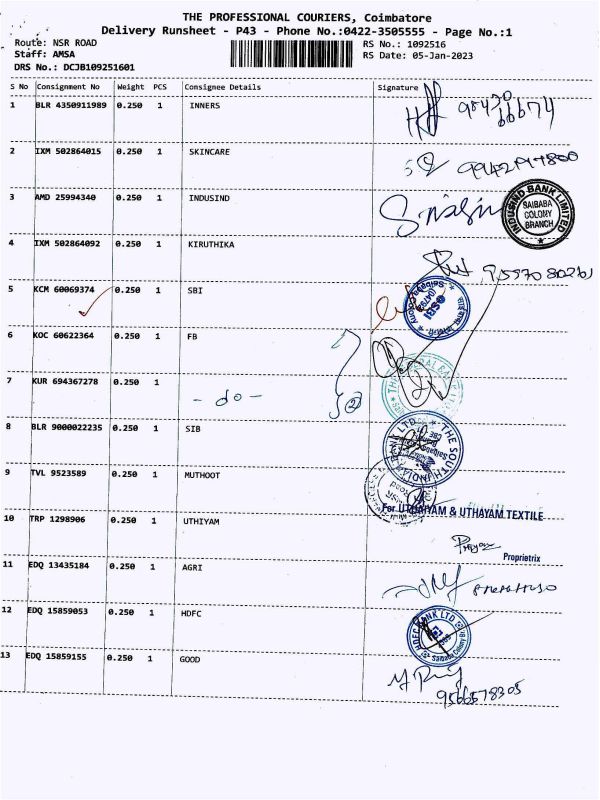 THE PROFESSIONAL COURIERS, Coimbatore
Delivery Runsheet - P43 - Phone No.:0422-3505555 - Page No.:1
Route: NSR ROAD
RS No.: 1092516
Staff: AMSA
RS Date: 05-Jan-2023
DRS No.: DCJB109251601
S No Consignment No Weight PCS Consignee Details Signature
1 BLR 4350911989 0.250 1 INNERS
2 IXM 502864015 0.250 1 SKINCARE
3 AMD 25994340 0.250 1 INDUSIND
INDUSIND BANK LIMITED SAIBABA COLONY BRANCH
4 IXM 502864092 0.250 1 KIRUTHIKA
5 KCM 60069374 0.250 1 SBI
6 KOC 60622364 0.250 1 FB
7 KUR 694367278 0.250 1
- do -
8 BLR 9000022235 0.250 1 SIB
THE SOUTH INDIAN BANK LTD
9 TVL 9523589 0.250 1 MUTHOOT
For UTHAIYAM & UTHAYAM TEXTILE
10 TRP 1298906 0.250 1 UTHIYAM
Proprietrix
11 EDQ 13435184 0.250 1 AGRI
12 EDQ 15859053 0.250 1 HDFC
HDFC BANK LTD
13 EDQ 15859155 0.250 1 GOOD
9566578305